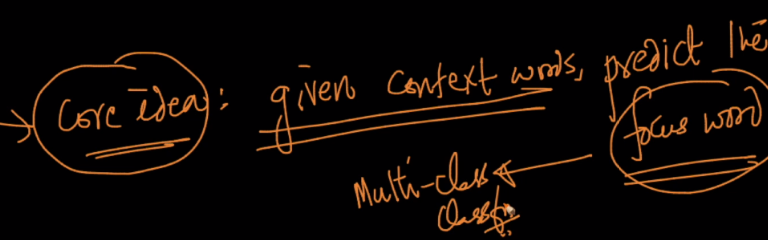 core idea: given context words, predict the
focus word
Multi-class